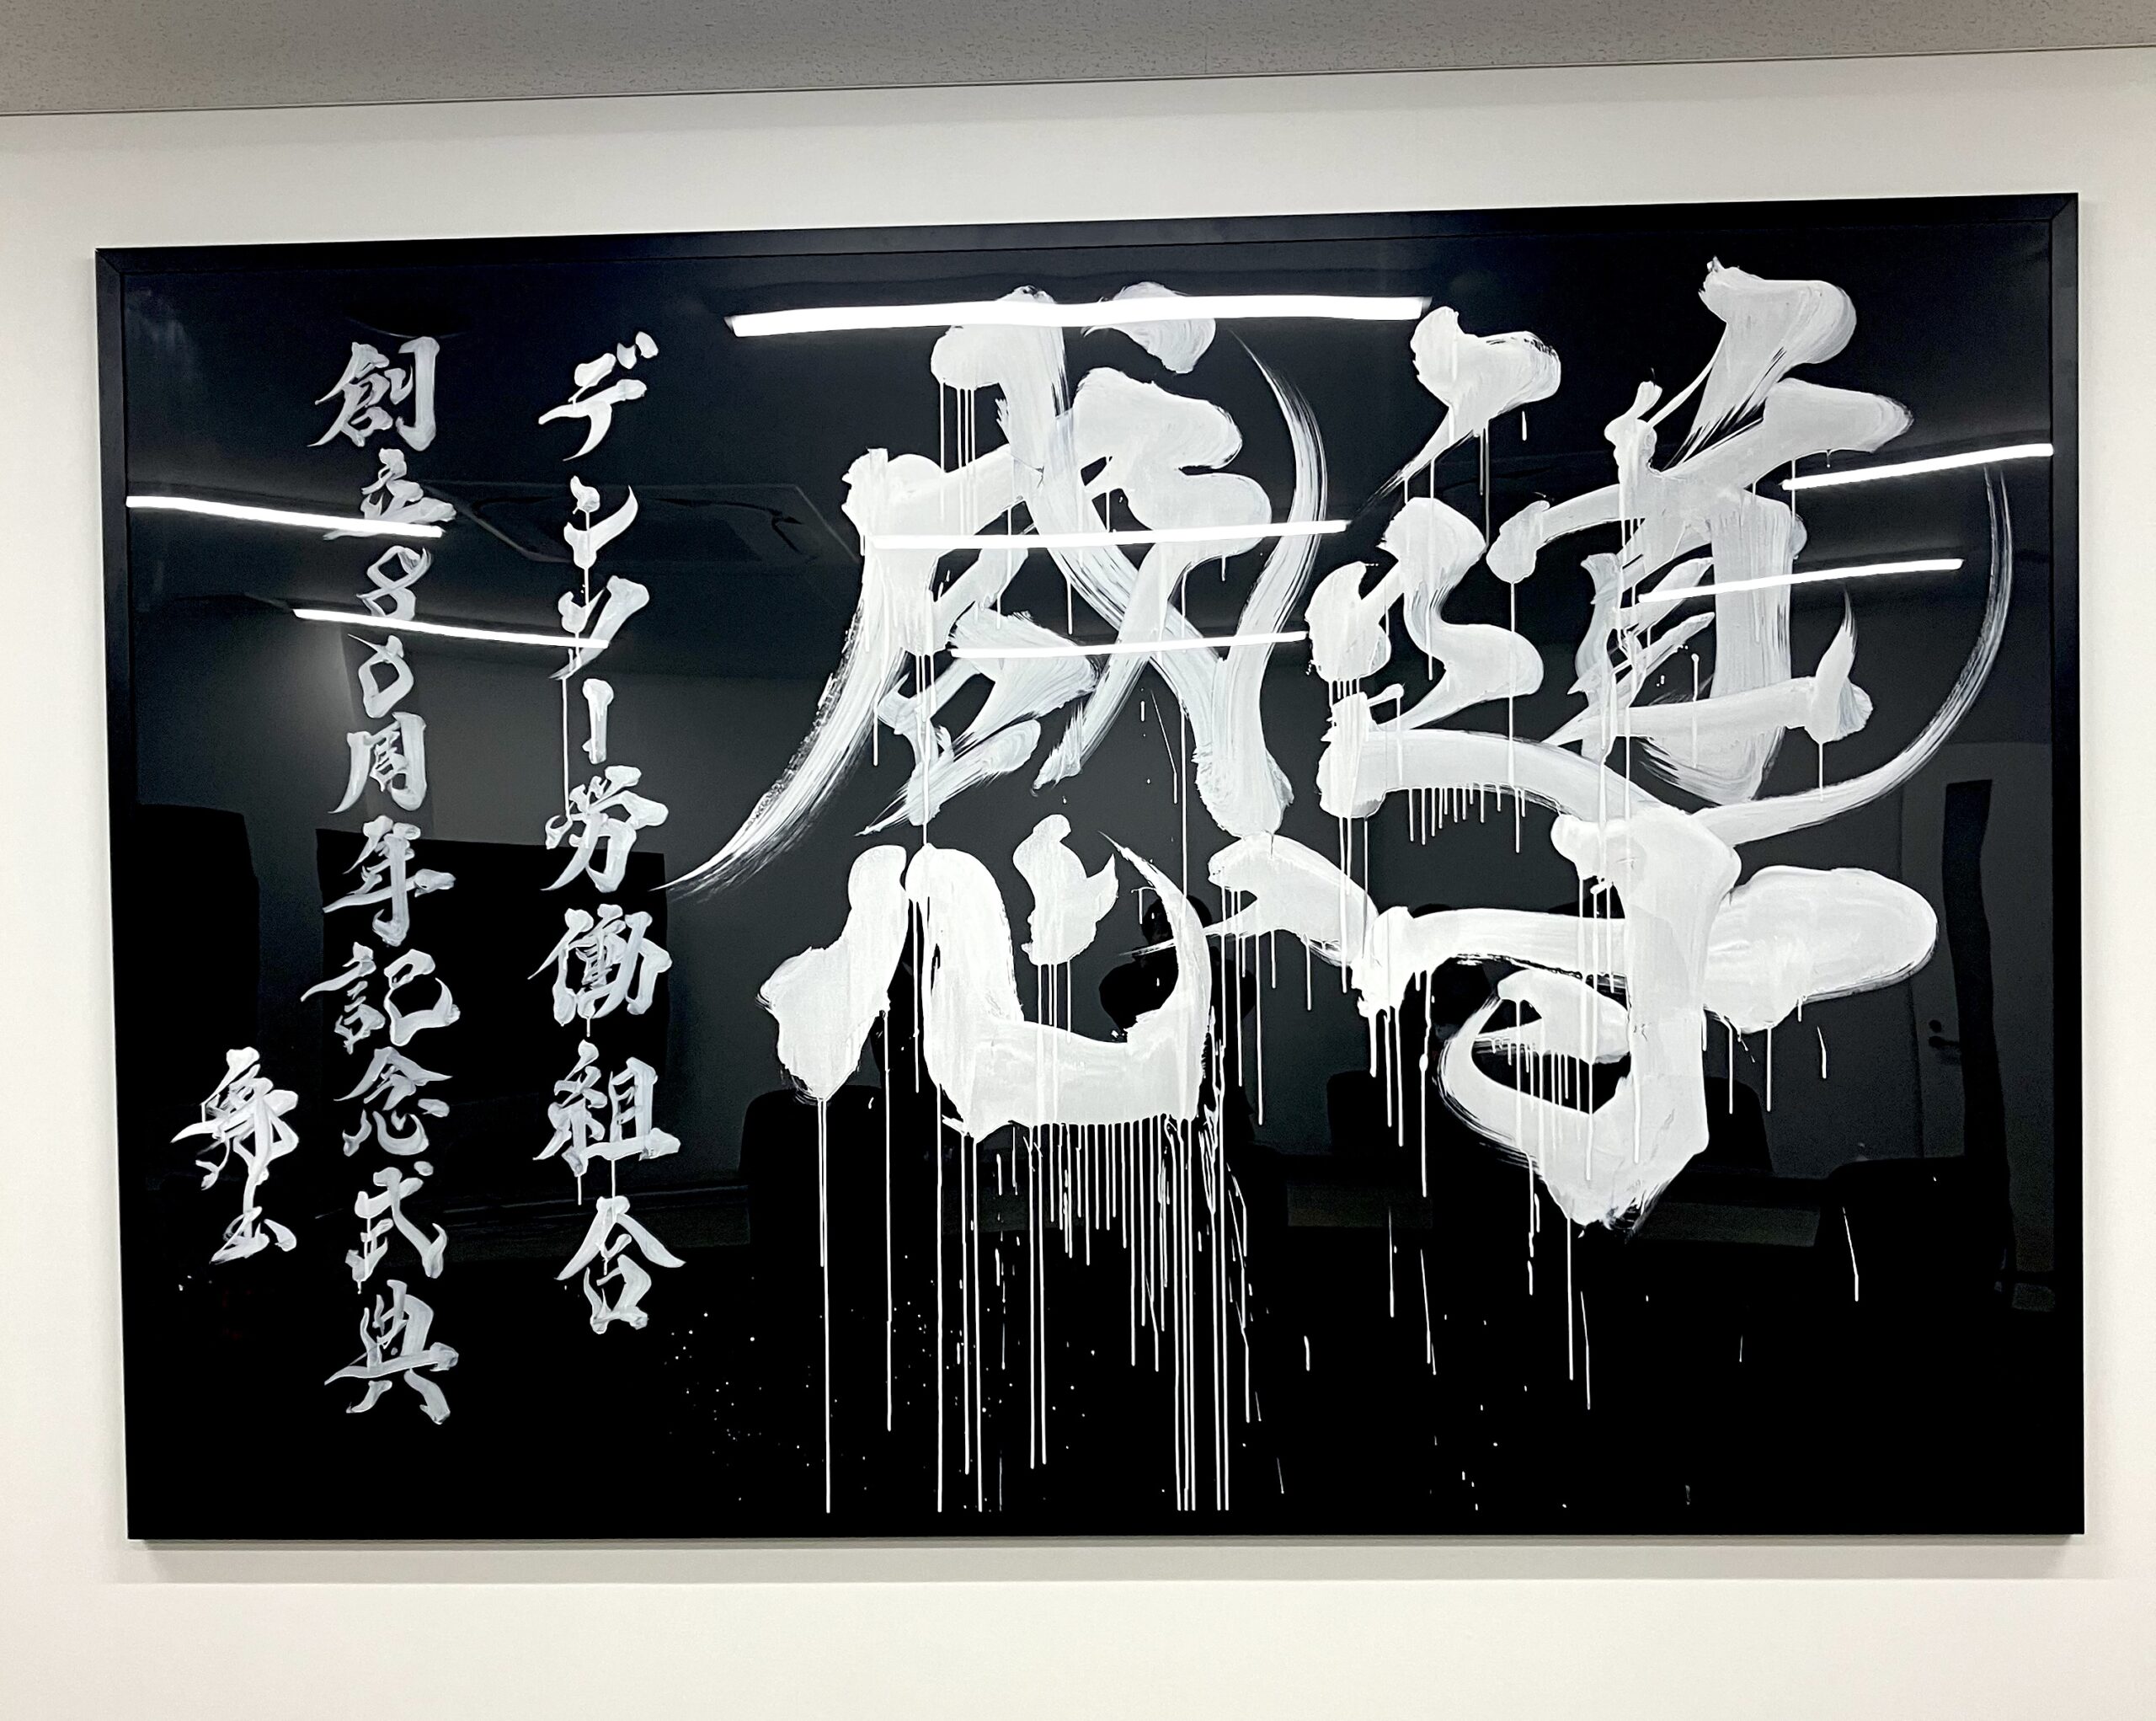 導感
デンソー労働組合
創立80周年記念式典